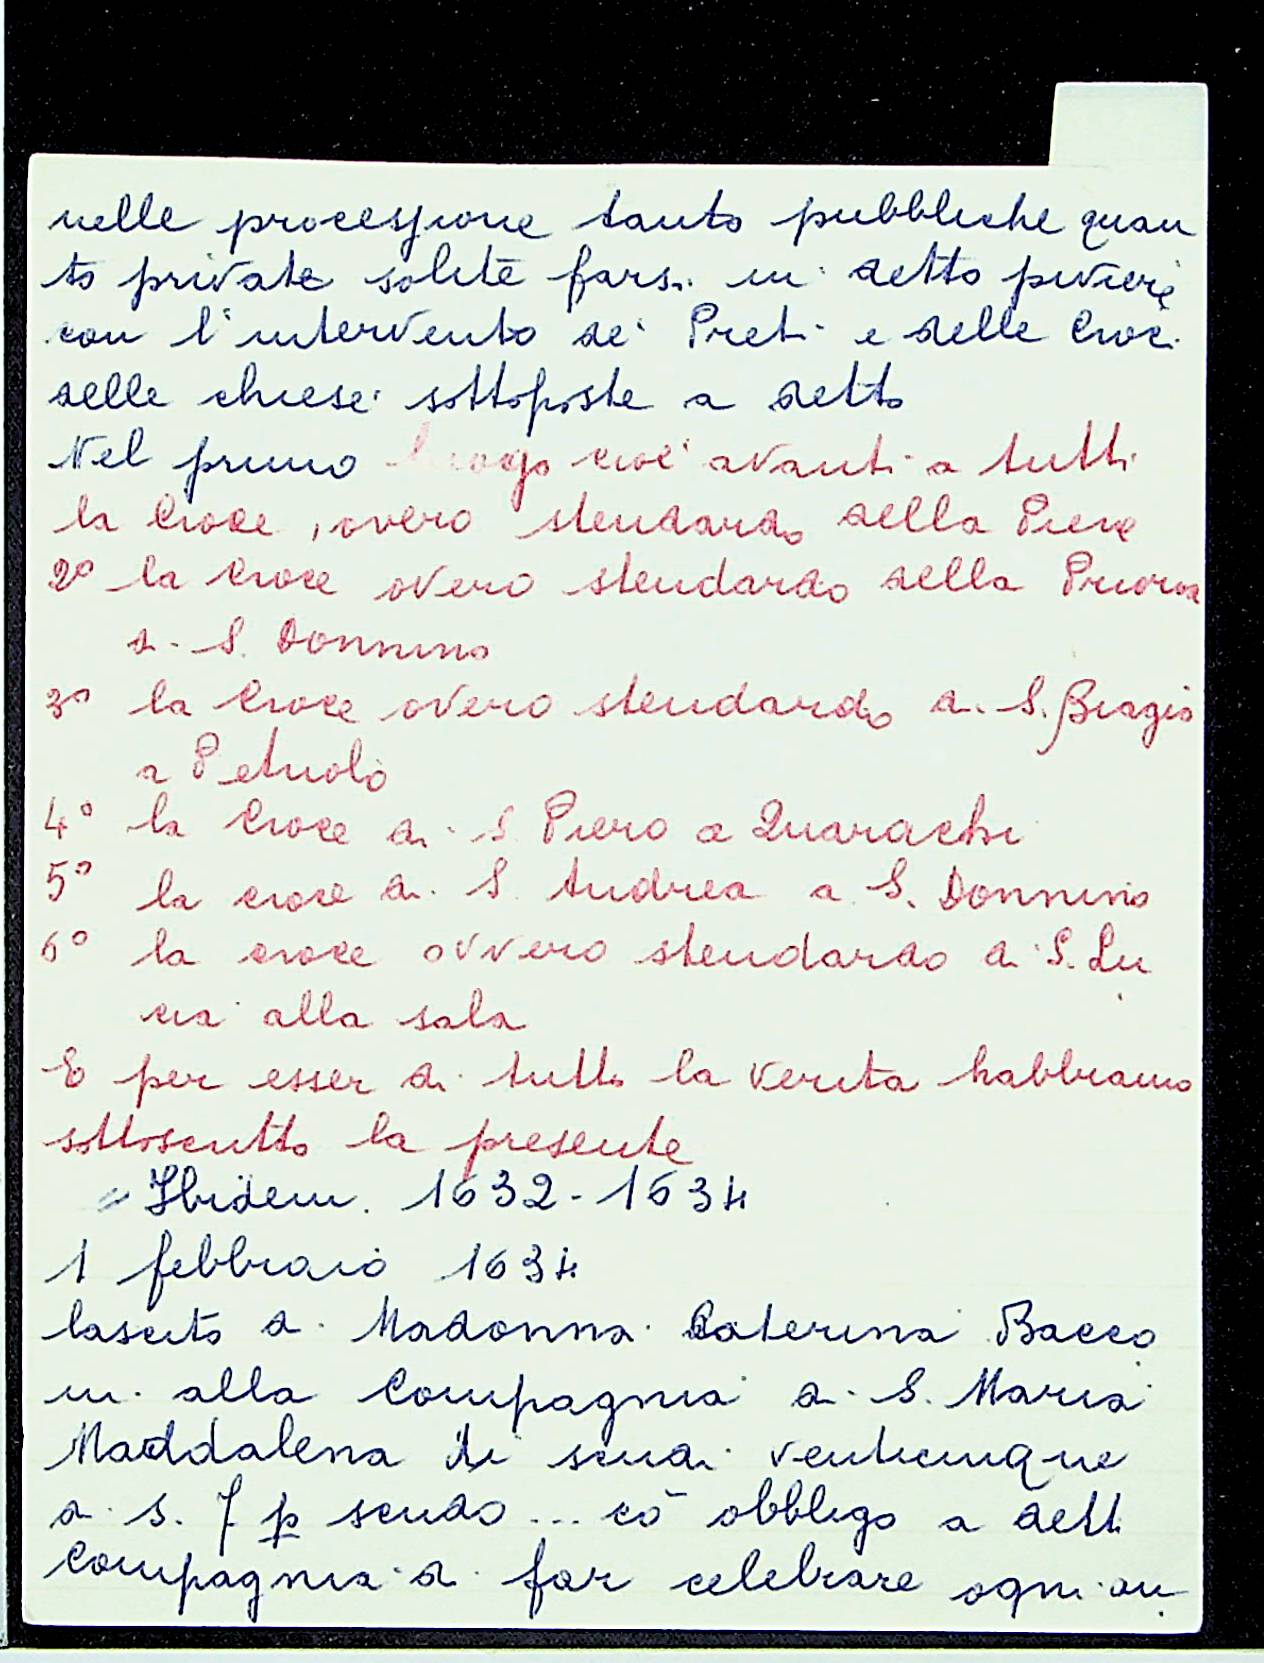 nelle processione tanto pubbliche quan
to private solite farsi in detto piviere
con l'intervento de' Preti e delle Croci
delle chiese sottoposte a detto
Nel primo luogo cioè avanti a tutti
la Croce, overo stendardo della Pieve
2º la Croce overo stendardo della Prioria
di S. Donnino
3º la Croce overo stendardo di S. Biagio
a Petriolo
4º la Croce di S Piero a Quarachi
5º la croce di S. Andrea a S. Donnino
6º la croce ovvero stendardo di S. Lu
cia alla sala
E per esser di tutto la verita habbiamo
sottoscritto la presente
= Ibidem. 1632-1634
1 febbraio 1634
lascito di Madonna Caterina Bacco
ni alla Compagnia di S. Maria
Maddalena di scudi venticinque
di s. 7 p scudo ... cō obbligo a dett
Compagnia di far celebrare ogni an